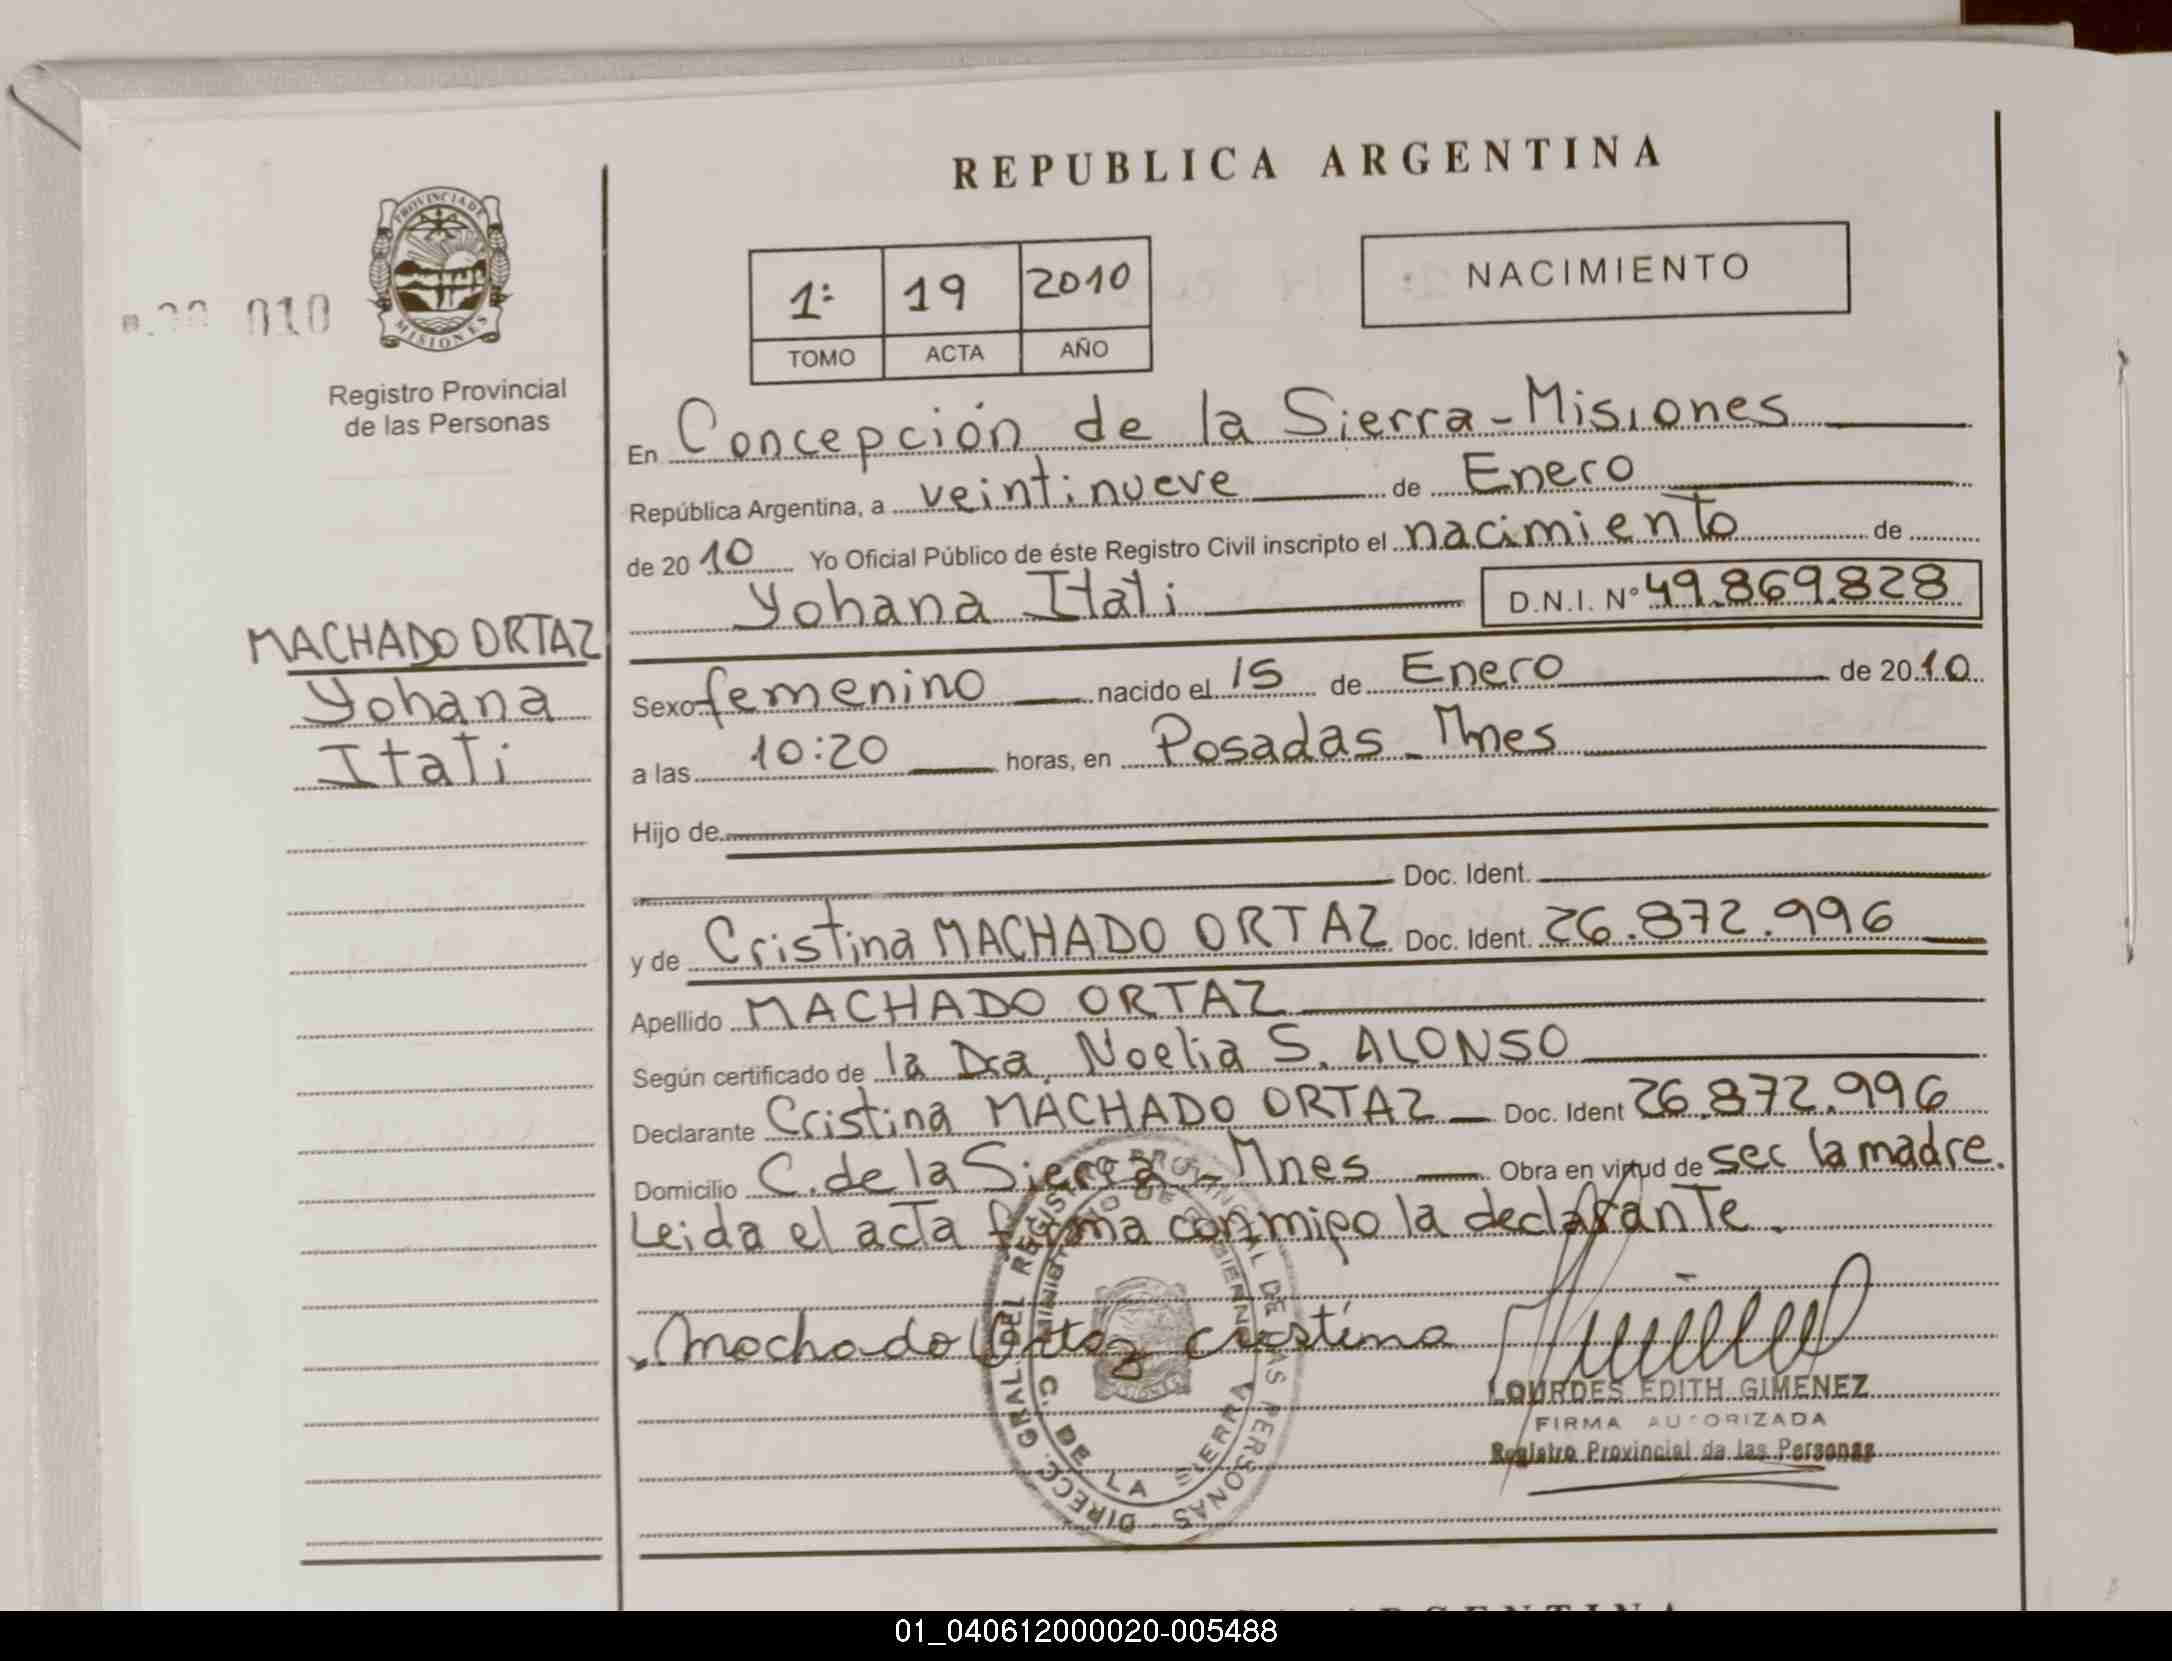 REPUBLICA ARGENTINA
PROVINCIA DE
MISIONES
010
Registro Provincial
de las Personas
1: 19 2010
TOMO ACTA AÑO
NACIMIENTO
En Concepción de la Sierra - Misiones
República Argentina, a veintinueve de Enero
de 2010 Yo Oficial Público de éste Registro Civil inscripto el nacimiento de
Yohana Itati D.N.I. N° 49.869.828
MACHADO ORTAZ
Yohana
Itati
Sexo femenino nacido el 15 de Enero de 2010
a las 10:20 horas, en Posadas - Mnes
Hijo de
Doc. Ident.
y de Cristina MACHADO ORTAZ Doc. Ident. 26.872.996
Apellido MACHADO ORTAZ
Según certificado de la Dra. Noelia S. ALONSO
Declarante Cristina MACHADO ORTAZ Doc. Ident 26.872.996
Domicilio C. de la Sierra - Mnes Obra en virtud de ser la madre.
Leida el acta firma conmigo la declarante.
Machado Ortaz Cristina
DIRECC. GRAL. DEL REGISTRO PROVINCIAL DE LAS PERSONAS
C. DE LA SIERRA
LOURDES EDITH GIMENEZ
FIRMA AUTORIZADA
Registro Provincial de las Personas
01_040612000020-005488